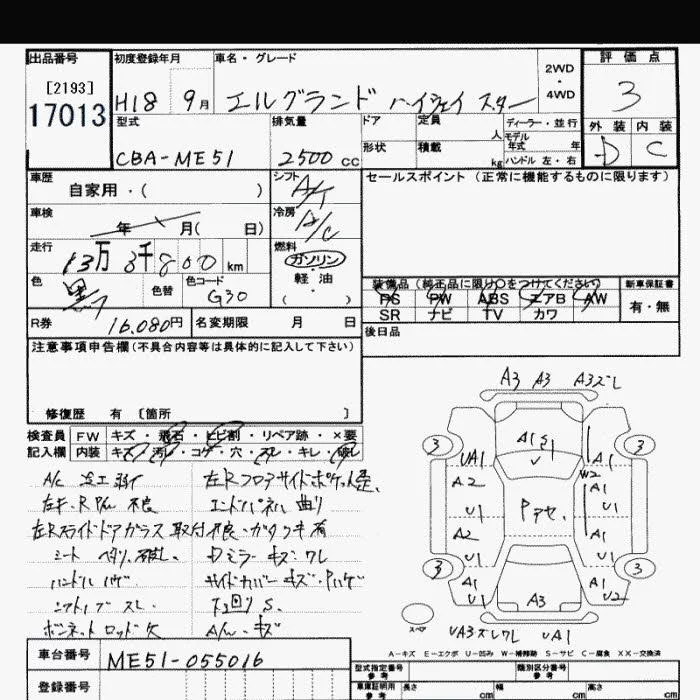 出品番号 初度登録年月 車名・グレード 評価点
[2193] 2WD
17013 H18 9月 エルグランド ハイウェイスター ・ 4WD 3
型式 排気量 ドア 定員 人 ディーラー・並行 外装 内装
CBA-ME51 2500cc 形状 積載 kg モデル年式 年 D C
ハンドル 左・右
車歴 シフト セールスポイント (正常に機能するものに限ります)
自家用・( ) A/T
車検 冷房
年 月( 日) A/C
走行 燃料
13万 8千800km ガソリン
色 色替 色コード 軽油
黒 G30 ( )
装備品 (純正品に限り○をつけてください) 新車保証書
PS PW ABS エアB AW 有・無
SR ナビ TV カワ
R券 16,080円 名変期限 月 日 後日品
注意事項申告欄 (不具合内容等は具体的に記入して下さい)
修復歴 有 〔箇所 〕
検査員 FW キズ・飛石・ヒビ割・リペア跡・×要
記入欄 内装 キズ・汚レ・コゲ・穴・スレ・キレ・破レ
左R フロアサイドポケット
左キ・R P/W 不良 エンドパネル 曲り
左Rスライドドアガラス 取付不良・ガタツキ有
シート ヘタリ、破レ、 Dミラー キズ・ワレ
ハンドル ハゲ サイドカバー キズ・Pハゲ
シフトノブ スレ 下回り S、
ボンネットロッド欠 A/w・キズ
A3 A3 A3スレ
3 A1 S1 3
UA1 W2
A2 A1
U1 Pアセ、 U1
A2 A1
U1 U1
3 A1 A3 A1 3
U1 U2
スペア UA3スレワレ UA1
A－キズ E－エクボ U－凹み W－補修跡 S－サビ C－腐食 XX－交換済
車台番号 ME51-055016
型式指定番号 参考 類別区分番号 参考
登録番号 車庫証明用 参考 長さ cm 幅 cm 高さ cm